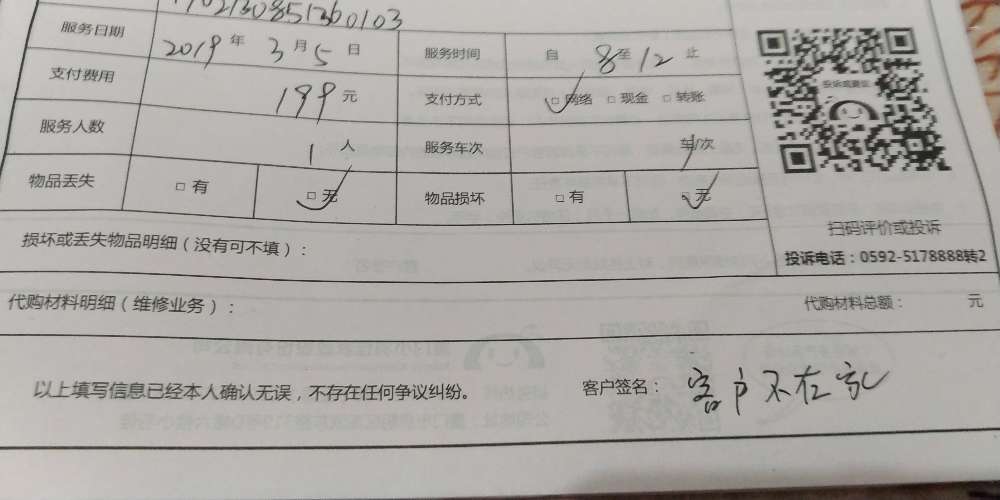 1902130851360103
服务日期 2019年3月5日 服务时间 自8至12止
支付费用 199元 支付方式 □网络 □现金 □转账
服务人数 1人 服务车次 车/次
物品丢失 □有 □无 物品损坏 □有 □无
投诉或建议
扫码评价或投诉
损坏或丢失物品明细（没有可不填）：
投诉电话：0592-5178888转2
代购材料明细（维修业务）： 代购材料总额： 元
以上填写信息已经本人确认无误，不存在任何争议纠纷。 客户签名：客户不在家